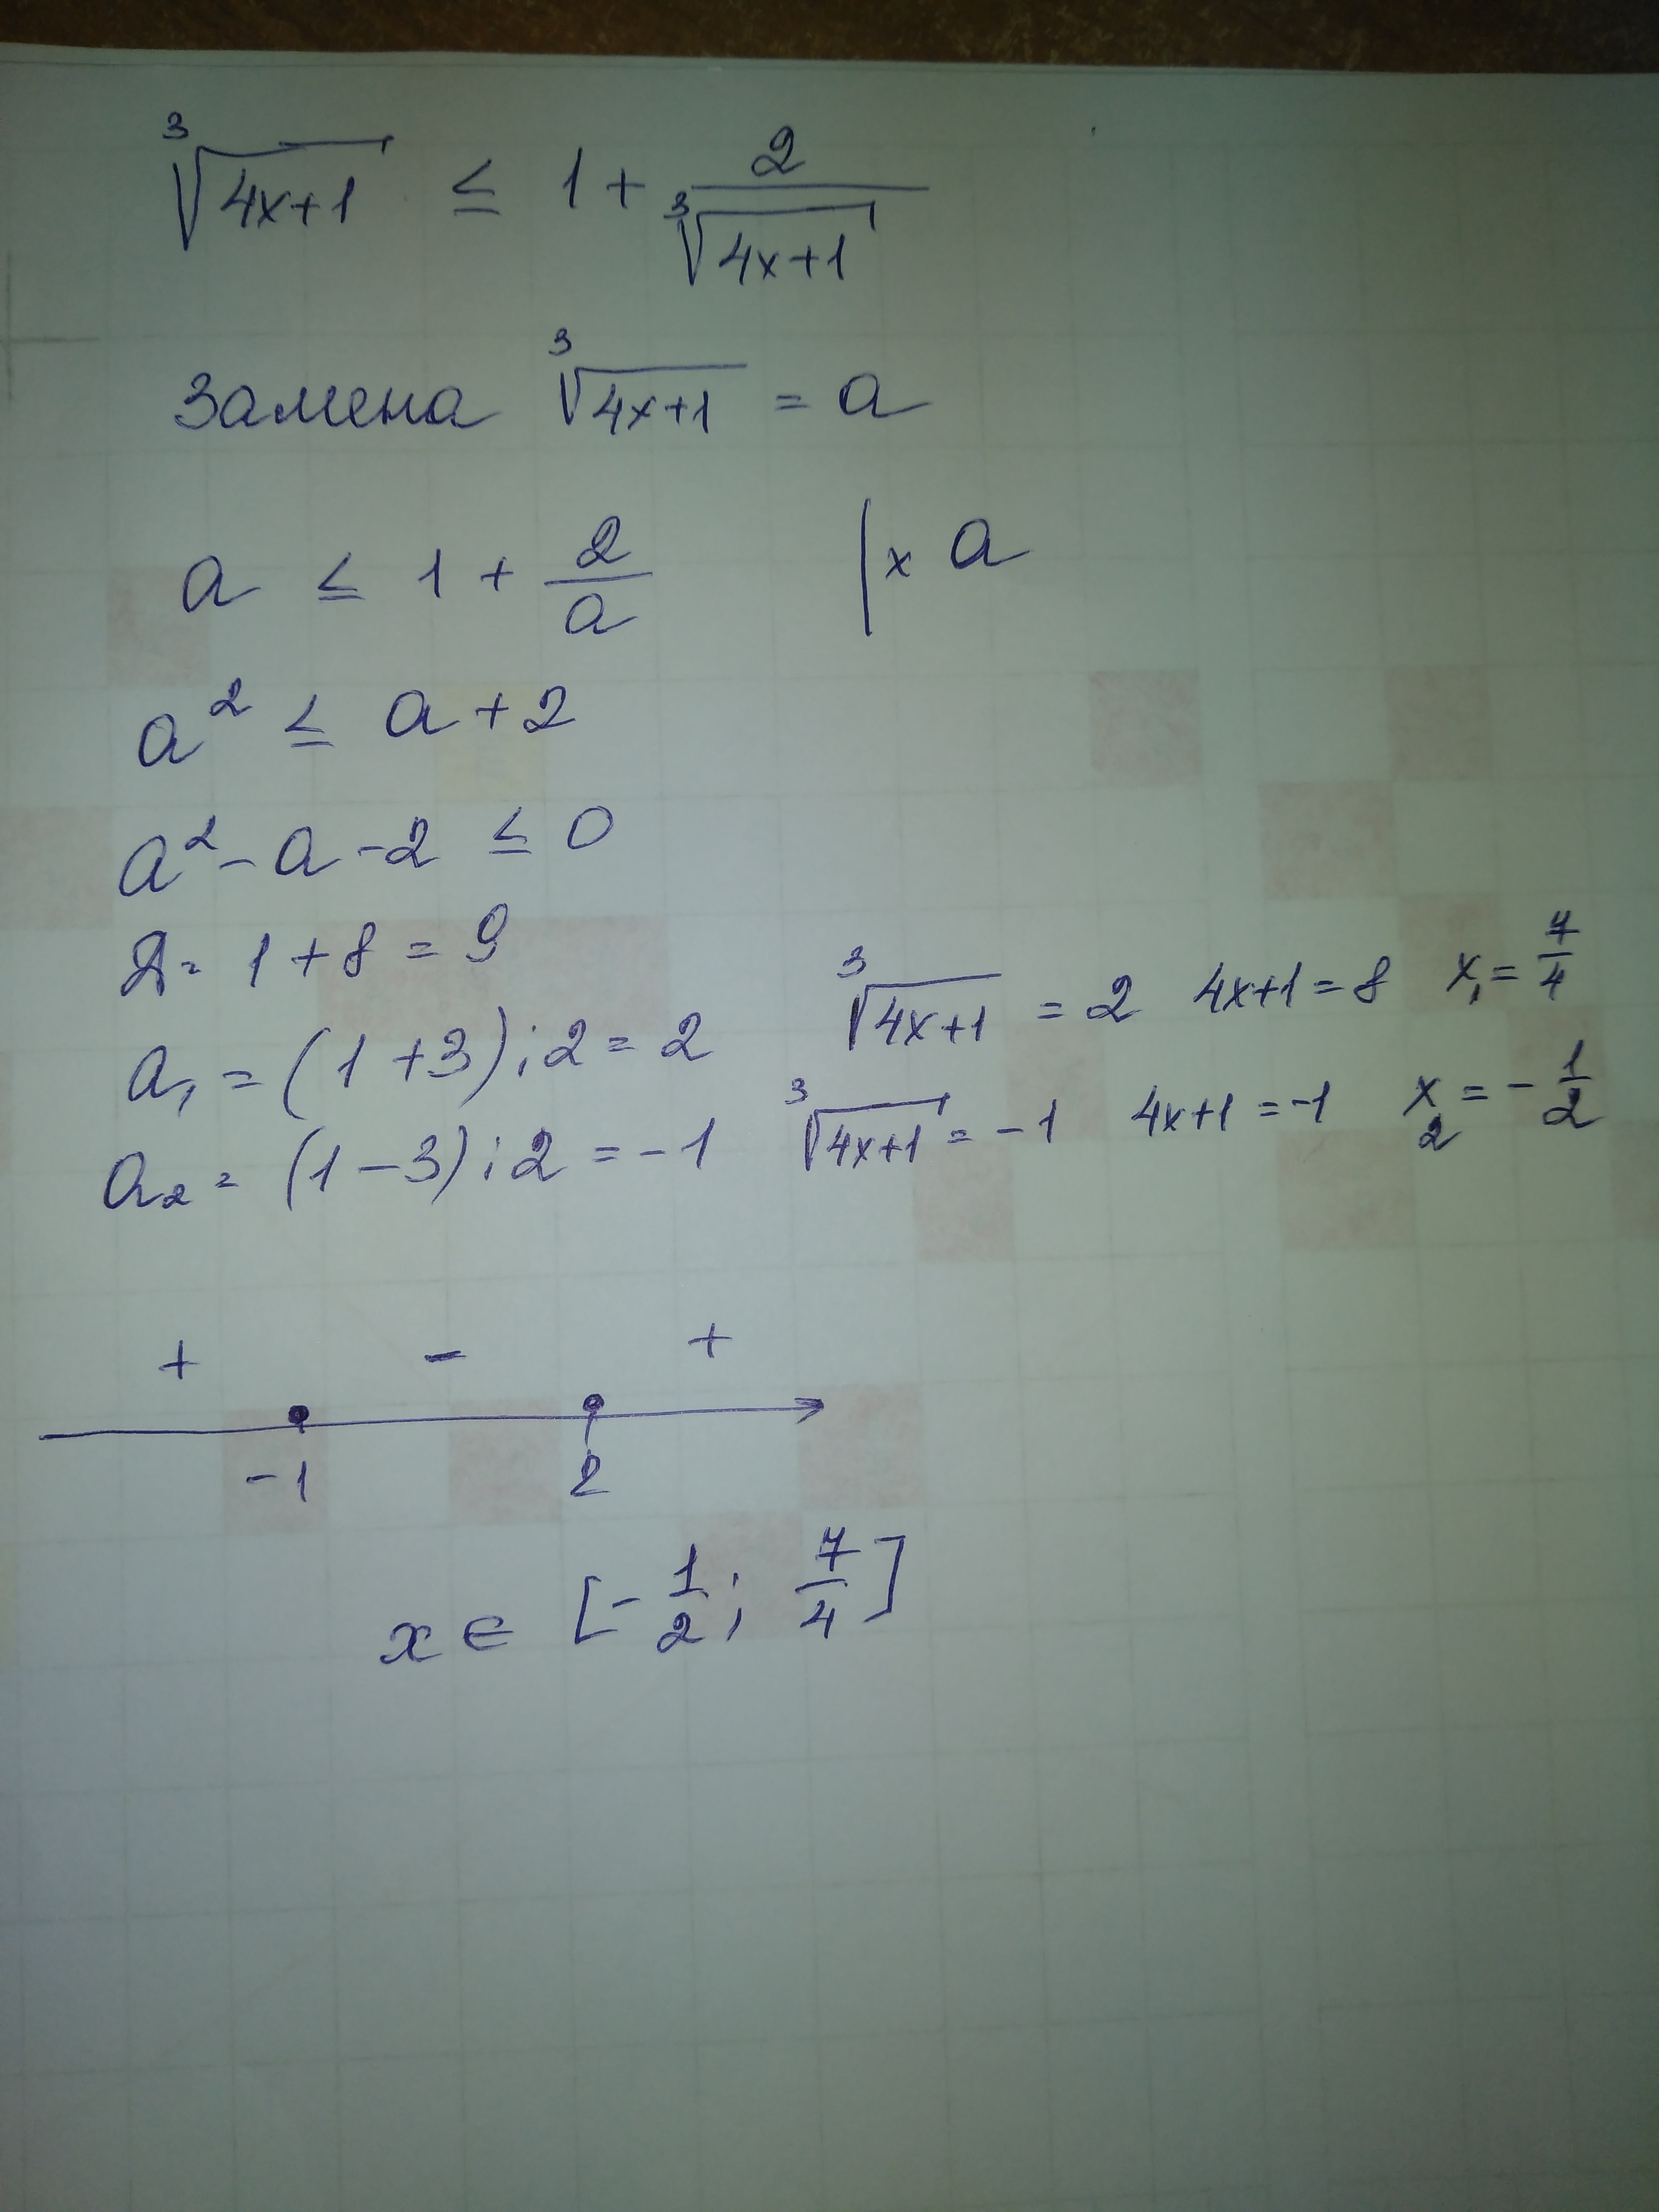 ∛(4x+1) ≤ 1 + 2/∛(4x+1)
Замена ∛(4x+1) = a
a ≤ 1 + 2/a | × a
a² ≤ a + 2
a² - a - 2 ≤ 0
Д = 1 + 8 = 9
a₁ = (1 + 3) : 2 = 2 ∛(4x+1) = 2 4x+1 = 8 x₁ = 7/4
a₂ = (1 - 3) : 2 = -1 ∛(4x+1) = -1 4x+1 = -1 x₂ = -1/2
+ - +
-1 2
x ∈ [-1/2; 7/4]